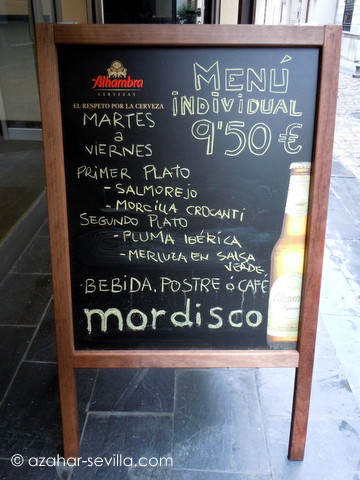 Alhambra
CERVEZAS
EL RESPETO POR LA CERVEZA
MENÚ
INDIVIDUAL
9'50€
MARTES
a
VIERNES
PRIMER PLATO
- SALMOREJO
- MORCILLA CROCANTI
SEGUNDO PLATO
- PLUMA IBÉRICA
- MERLUZA EN SALSA
VERDE
· BEBIDA, POSTRE ó CAFÉ
mordisco
Alhambra
© azahar-sevilla.com